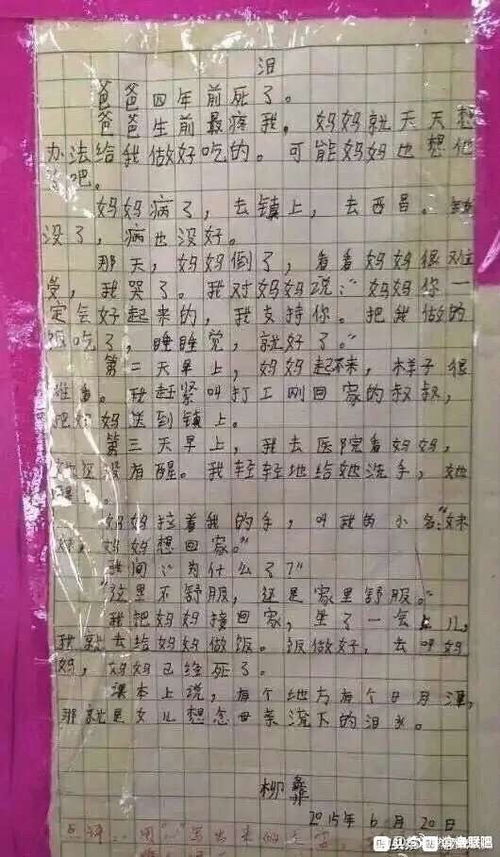 泪
爸爸四年前死了。
爸爸生前最疼我,妈妈就天天想
办法给我做好吃的。可能妈妈也想他
了吧。
妈妈病了,去镇上,去西昌。钱
没了,病也没好。
那天,妈妈倒了,看看妈妈很难
受,我哭了。我对妈妈说:“妈妈你一
定会好起来的,我支持你。把我做的
饭吃了,睡睡觉,就好了。”
第二天早上,妈妈起不来,样子很
难看。我赶紧叫打工刚回家的叔叔,
把妈妈送到镇上。
第三天早上,我去医院看妈妈,
她还没有醒。我轻轻地给她洗手,她
醒了。
妈妈拉着我的手,叫我的小名:“妹
妹,妈妈想回家。”
我问:“为什么了?”
“这里不舒服,还是家里舒服。”
我把妈妈接回家,坐了一会儿,
我就去给妈妈做饭。饭做好,去叫妈
妈,妈妈已经死了。
课本上说,有个地方有个日月潭,
那就是女儿想念母亲流下的泪水。
柳彝
2015年6月20日
点评: